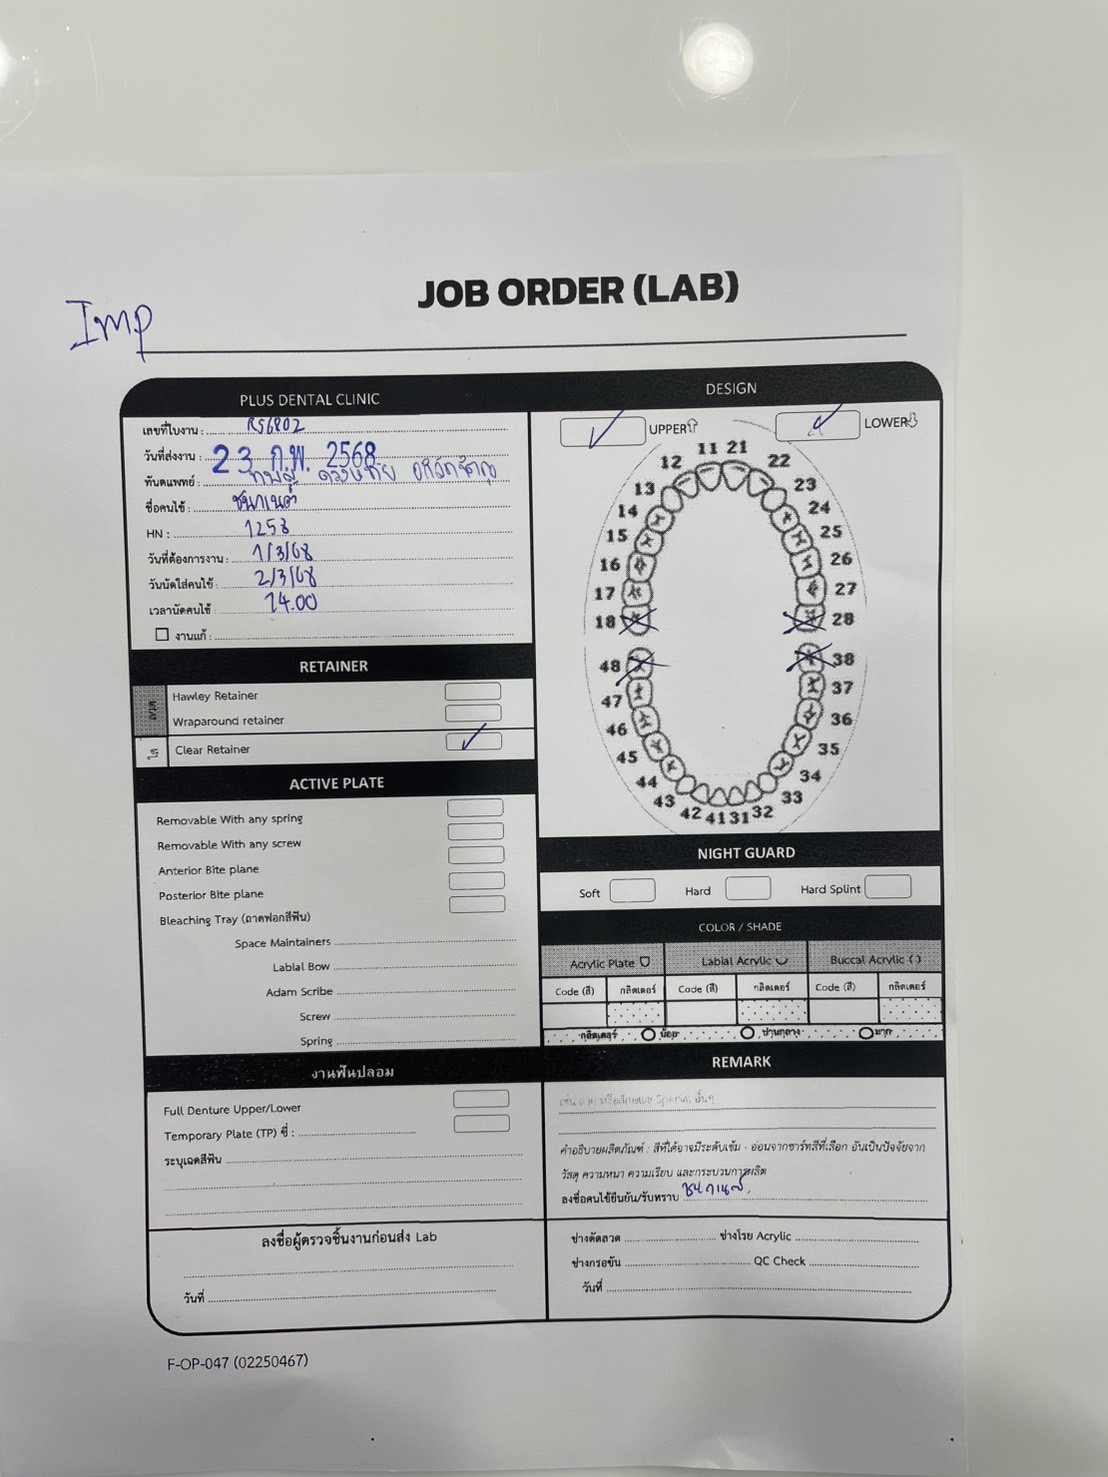 JOB ORDER (LAB)
Imp
PLUS DENTAL CLINIC
เลขที่ใบงาน : RS6802
วันที่ส่งงาน : 23 ก.พ. 2568
ทันตแพทย์ :
ชื่อคนไข้ :
HN : 1258
วันที่ต้องการงาน : 1/3/68
วันนัดใส่คนไข้ : 2/3/68
เวลานัดคนไข้ : 14.00
งานแก้ :
RETAINER
Hawley Retainer
Wraparound retainer
ใส
Clear Retainer
ACTIVE PLATE
Removable With any spring
Removable With any screw
Anterior Bite plane
Posterior Bite plane
Bleaching Tray (ถาดฟอกสีฟัน)
Space Maintainers
Labial Bow
Adam Scribe
Screw
Spring
งานฟันปลอม
Full Denture Upper/Lower
Temporary Plate (TP) ซี่ :
ระบุเฉดสีฟัน
ลงชื่อผู้ตรวจชิ้นงานก่อนส่ง Lab
วันที่
DESIGN
UPPER
LOWER
11 21
12 22
13 23
14 24
15 25
16 26
17 27
18 28
48 38
47 37
46 36
45 35
44 34
43 33
42 41 31 32
NIGHT GUARD
Soft Hard Hard Splint
COLOR / SHADE
Acrylic Plate Labial Acrylic Buccal Acrylic ( )
Code (สี) กลิตเตอร์ Code (สี) กลิตเตอร์ Code (สี) กลิตเตอร์
กลิตเตอร์ น้อย ปานกลาง มาก
REMARK
คำอธิบายผลิตภัณฑ์ : สีที่ได้อาจมีระดับเข้ม - อ่อนจากชาร์ทสีที่เลือก อันเป็นปัจจัยจาก
วัสดุ ความหนา ความเรียบ และกระบวนการผลิต
ลงชื่อคนไข้ยืนยัน/รับทราบ
ช่างดัดลวด ช่างโรย Acrylic
ช่างกรอขัน QC Check
วันที่
F-OP-047 (02250467)